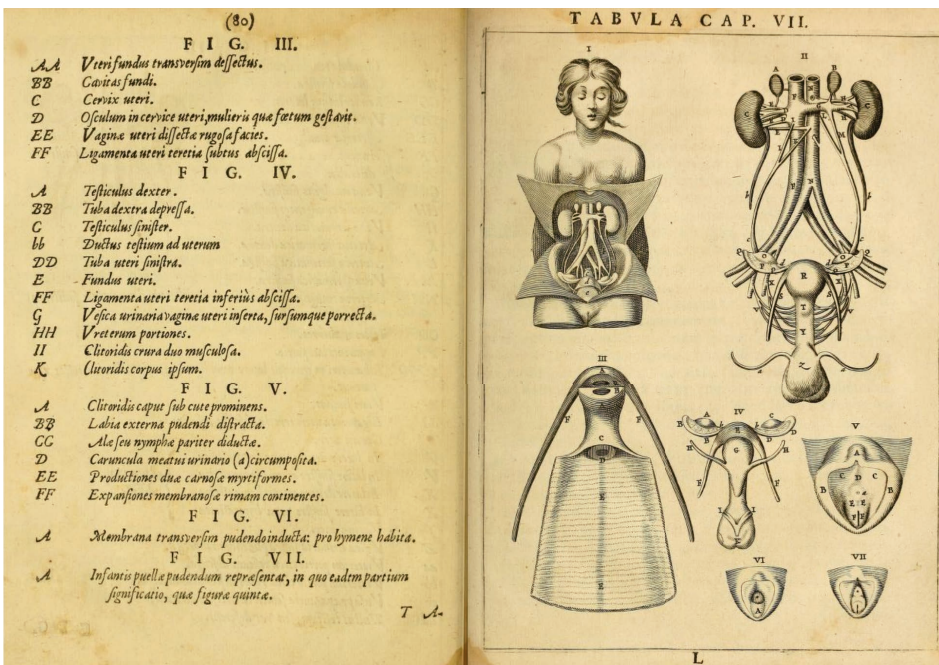 (80)
FIG. III.
AA Vteri fundus transversim dessectus.
BB Cavitas fundi.
C Cervix uteri.
D Osculum in cervice uteri, mulieris quæ fœtum gestarit.
EE Vaginæ uteri dissectæ rugosa facies.
FF Ligamenta uteri teretia subtus abscissa.
FIG. IV.
A Testiculus dexter.
BB Tuba dextra depressa.
C Testiculus sinister.
bb Ductus testium ad uterum
DD Tuba uteri sinistra.
E Fundus uteri.
FF Ligamenta uteri teretia inferiùs abscissa.
G Vesica urinaria vaginæ uteri inserta, sursumque porrecta.
HH Vreterum portiones.
II Clitoridis crura duo musculosa.
K Clitoridis corpus ipsum.
FIG. V.
A Clitoridis caput sub cute prominens.
BB Labia externa pudendi distracta.
CC Alæ seu nymphæ pariter diductæ.
D Caruncula meatui urinario (a) circumposita.
EE Productiones duæ carnosæ myrtiformes.
FF Expansiones membranosæ rimam continentes.
FIG. VI.
A Membrana transversim pudendo inducta: pro hymene habita.
FIG. VII.
A Infantis puellæ pudendum repræsentat, in quo eadem partium
significatio, quæ figuræ quintæ.
T A-
TABVLA CAP. VII.
I
II
III
IV
V
VI
VII
L